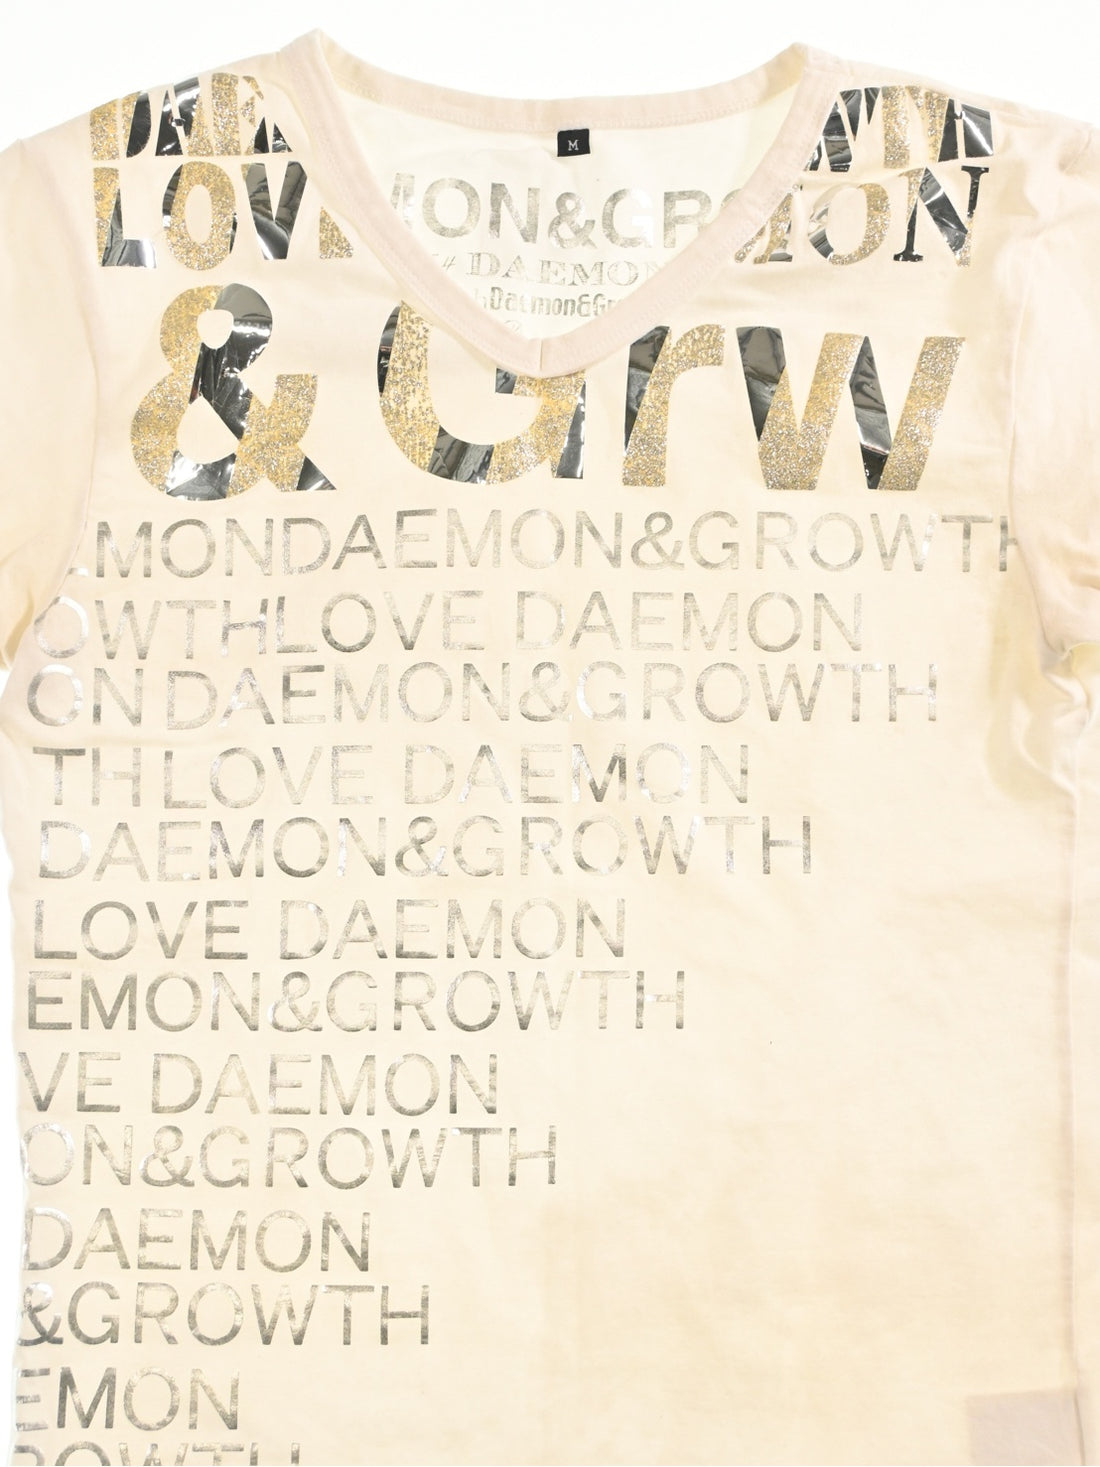 M
MON&GR
DAEMON
Daemon&Gr
LOVE
MON
& Grw
MONDAEMON&GROWTH
OWTHLOVE DAEMON
ON DAEMON&GROWTH
TH LOVE DAEMON
DAEMON&GROWTH
LOVE DAEMON
EMON&GROWTH
VE DAEMON
ON&GROWTH
DAEMON
&GROWTH
EMON
ROWTH